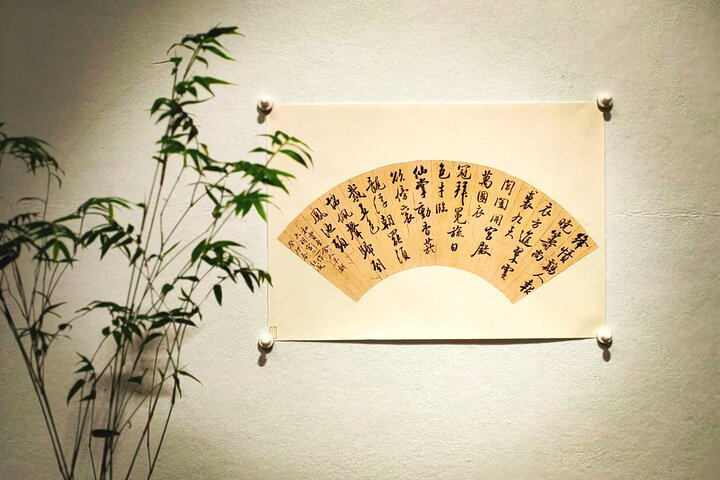 絳幘雞人報
曉籌尚
衣方進翠雲
裘九天
閶闔開宮殿
萬國衣
冠拜冕旒日
色才臨
仙掌動香菸
欲傍袞
龍浮朝罷須
裁五色
詔佩聲歸到
鳳池頭